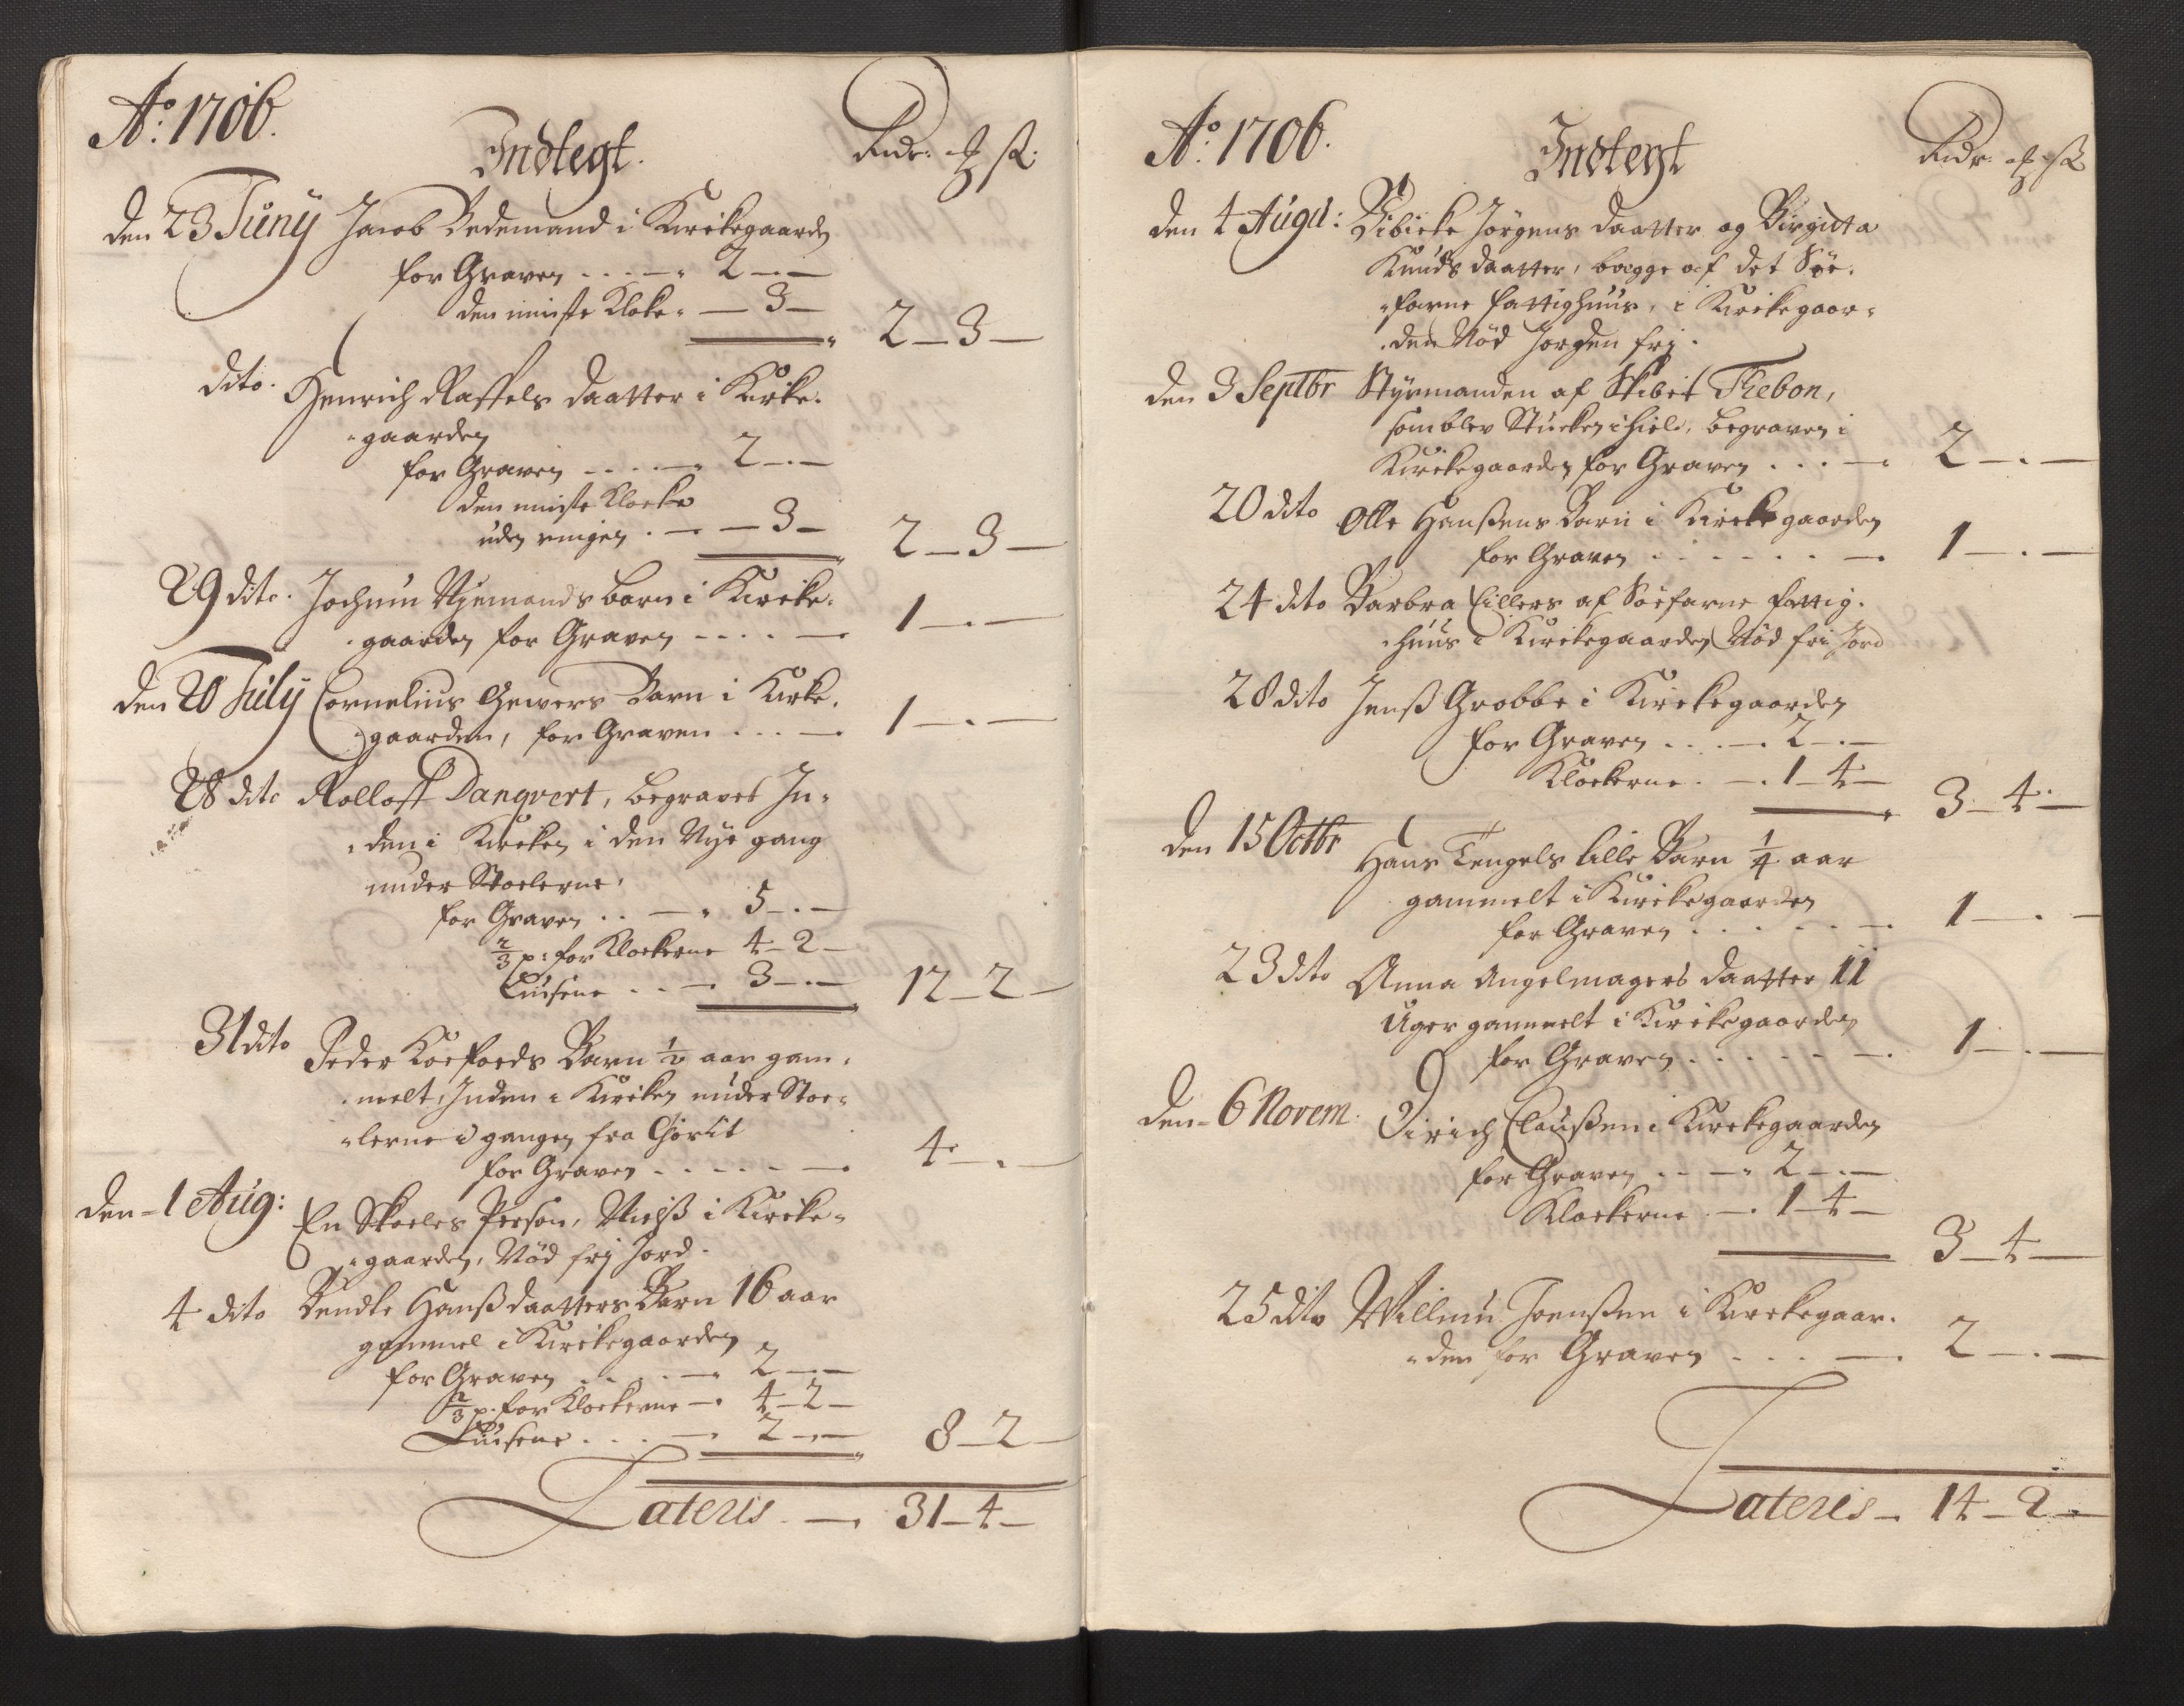 Ao: 1706.
Indtegt.
Rdr: ₰ ſß:
den 23 Juny Jacob Bedemand i Kirckegaarden
for Graven . . . — 2 — . —
den minste Klocke. — 3 —
2 — 3 —
dito. Henrich Raffels daatter i Kircke-
gaarden
for Graven . . . — 2 — . —
den minste Klocke
uden ringen . — — 3 —
2 — 3 —
29 dito. Jochum Njemands barn i Kircke-
gaarden for Graven . . . . — 1 — . —
den 20 July Cornelius Gewers Barn i Kirke-
gaarden, for Graven . . . — 1 — . —
28 dito Rolloff Danqvert, begravet In-
den i Kircken i den Nye gang
under Stoelerne.
for Graven . . — 5 — . —
2/3 p: for Klockerne 4 — 2 —
Luisene . . — 3 — . —
12 — 2 —
31 dito Peder Koefoeds Barn 1/2 aar gam-
melt, Inden i Kircken under Stoe-
lerne i gangen fra Choret
for Graven . . . . . — 4 — . —
den 1 Aug: En Skoeles Person, Nielß i Kircke-
gaarden, Nød frj Jord.
4 dito Bendte Hanßdaatters Barn 16 aar
gammel i Kirckegaarden
for Graven . . . — 2 — . —
2/3 p. for Klockerne — 4 — 2 —
Luisene . . . — 2 — . —
8 — 2 —
Lateris . — 31 — 4 —
Ao: 1706.
Indtegt
Rdr. ₰ ſß
den 4 Augst: Vibicke Jörgens daatter og Birgitta
Knuds daatter, begge af det Söe-
farne fattighuus, i Kirckegaar-
den Nöd Jorden frj.
den 3 Septbr Styrmanden af Skibet Thebon,
som blev Stucken ihiel, begraven i
Kirckegaarden for Graven . . . — 2 — . —
20 dito Olle Hanßens Barn i Kirckegaarden
for Graven . . . . . . — 1 — . —
24 dito Barbra Eillers af Söefarne fattig-
huus i Kirckegaarden Nöd fri Jord
28 dito Jenß Grobbe i Kirckegaarden
for Graven . . . — 2 — . —
Klockerne . — 1 — 4 —
3 — 4 —
den 15 Octbr Hans Tengels lille Barn 1/4 aar
gammelt i Kirckegaarden
for Graven . . . . . — 1 — . —
23 dito Anna Angelmagers daatter 11
Uger gammelt i Kirckegaarden
for Graven . . . . . . — 1 — . —
den 6 Novem. Dirich Claußen i Kirckegaarden
for Graven . . — 2 — . —
Klockerne . — 1 — 4 —
3 — 4 —
25 dito Willum Joenßen i Kirckegaar-
den for Graven . . . — 2 — . —
Lateris — 14 — 2 —